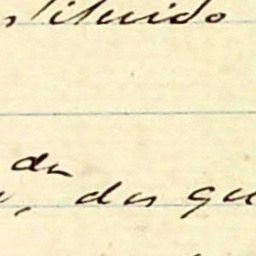 stituido
da
, dos qu